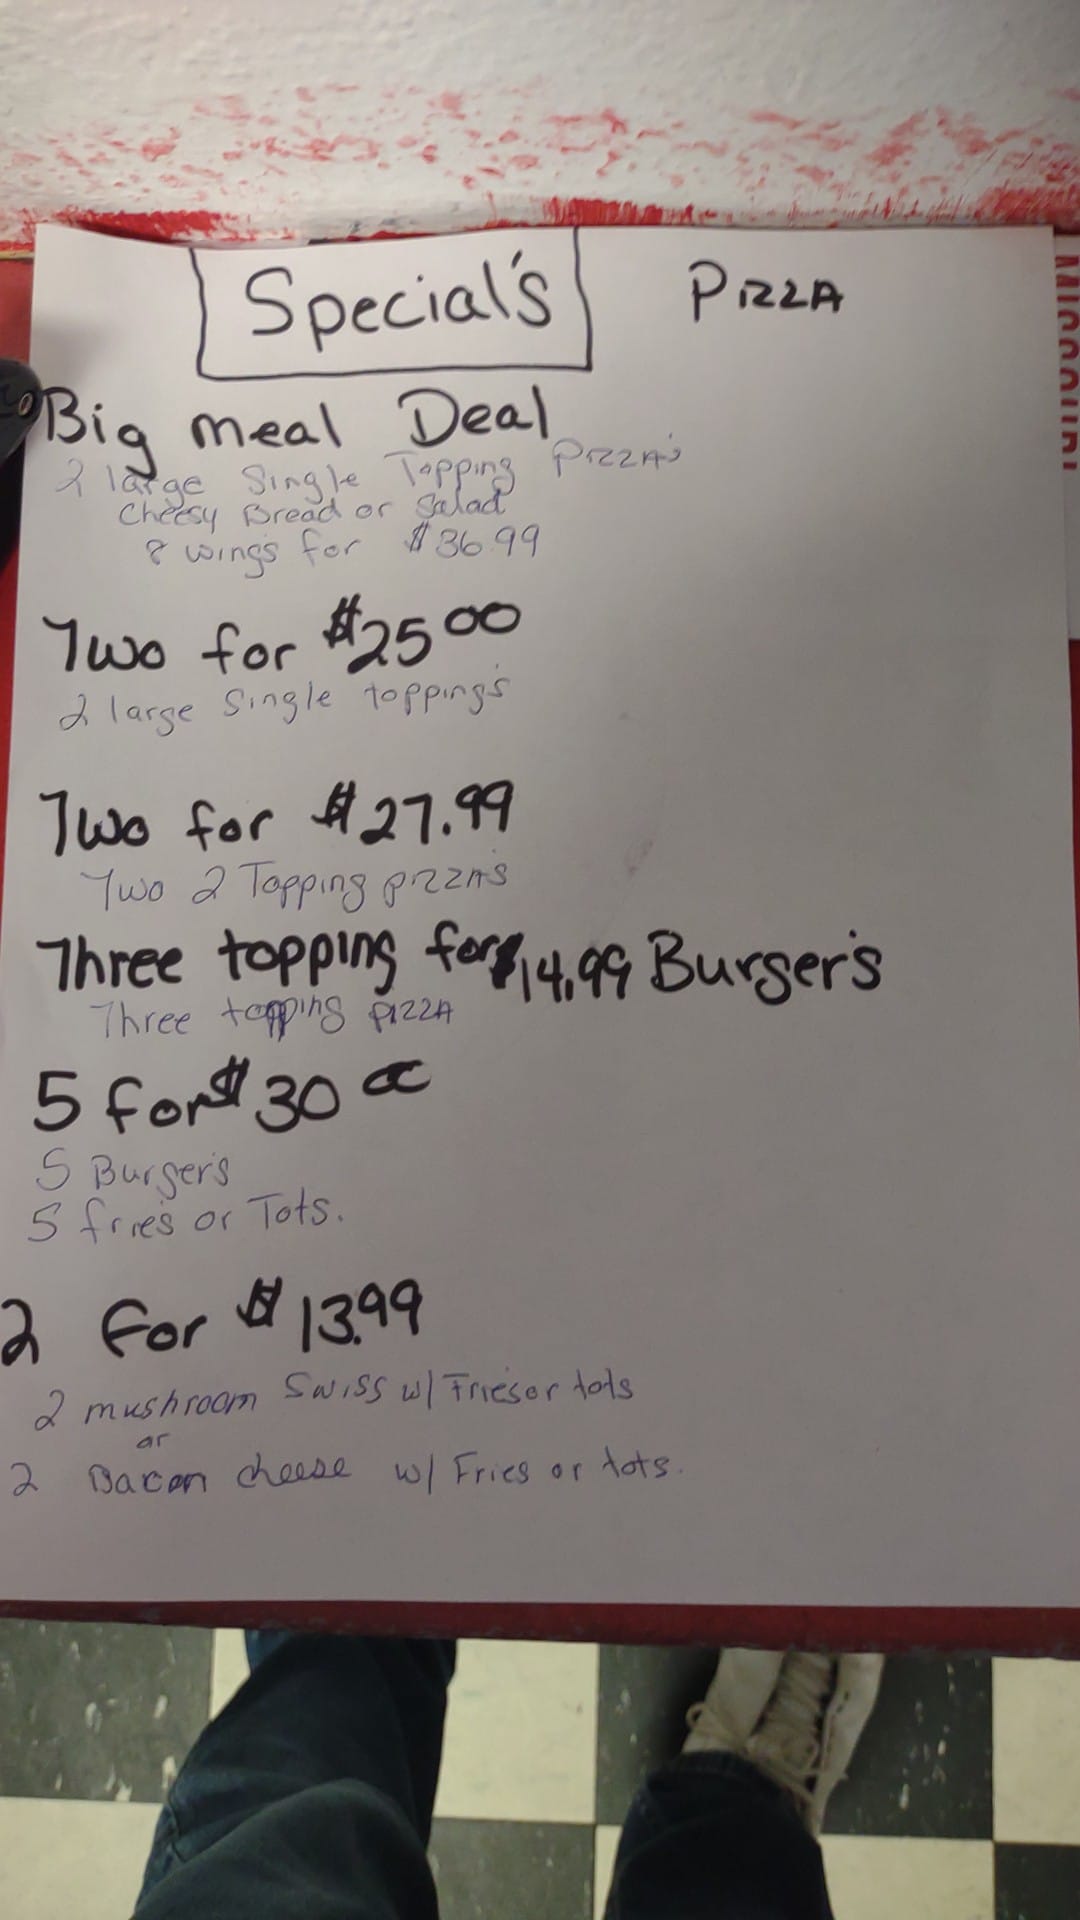 Special's PIZZA
Big meal Deal
2 large Single Topping PIZZA's
Cheesy Bread or Salad
8 wing's for $36.99
Two for $25 00
2 large Single topping's
Two for $27.99
Two 2 Topping PIZZA'S
Three topping for $14.99 Burger's
Three topping PIZZA
5 for $30 00
5 Burger's
5 frie's or Tots.
2 for $13.99
2 mushroom Swiss w/ Fries or tots
or
2 Bacon cheese w/ Fries or tots.
MISSOURI